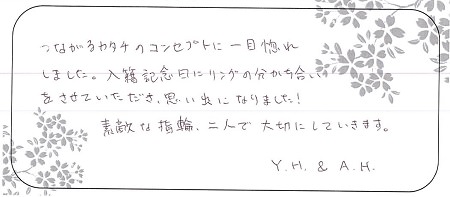 つながるカタチのコンセプトに一目惚れ
しました。入籍記念日にリングの分かち合い
をさせていただき、思い出になりました!
素敵な指輪、二人で大切にしていきます。
Y.H. & A.H.